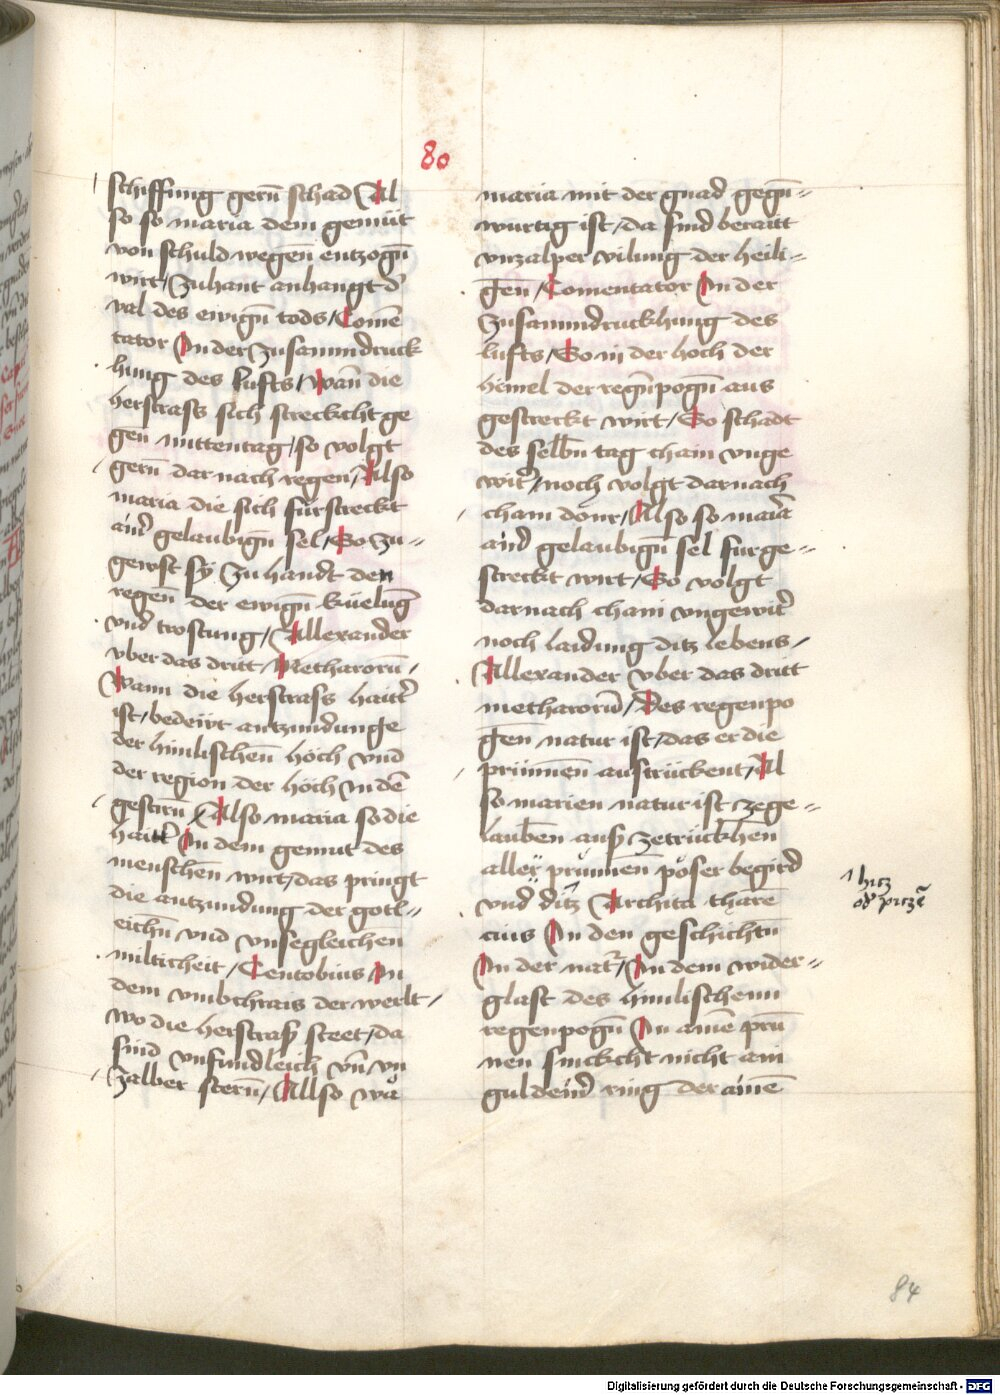 80
schiffung gern̄ schad Al
so so maria dem gemüt
von schuld wegen̄ entzogn̄
wirt / zuhant anhangt d'
val des ewign̄ tods / Comē
tator In der zusammdruck
hung des lufts / Wan̄ die
herstrass sich streckcht ge
gen mittentag / so volgt
gern̄ dar nach regen / Also
maria die sich fürstreckt
ain' gelaubign̄ sel / So zu=
gewst sÿ zu handt den
regen̄ der ewign̄ küelung
vnd trostung / Allexander
vber das dritt / Metharorū /
Wann die herstrass haitt'
ist / bedeüt antzundunge
der himlischen̄ höch vnd
der region der höch In dē
gestirn̄ Also maria so die
haitt' In dem gemüt des
menschen̄ wirt / das pringt
die antzundung der gotl=
eichn̄ vnd vnsegleichen̄
milticheit / Centobius In
dem vmbchrais der werlt /
wo die herstrass steet / da
sind vnfundleich vn̄ vn
zalber stern̄ / Allso wa
maria mit der gnad gegn̄=
wurtig ist / da sind beraitt
vnzalper vilung der heili=
gen̄ / Comentator In der
zusammdruckhung des
lufts / So in der hoch der
himel der regn̄pogn̄ aus
gestreckt wirt / So schadt
des selbn̄ tag chain vnge
wit' / noch volgt darnach
chain donr / Allso so maria
ain' gelaubign̄ sel furge=
streckt wirt / So volgt
darnach chain vngewit'
noch laidung ditz lebens /
Allexander vber das dritt
metharorū / Des regenpo
gen̄ natur ist / das er die
prünnen̄ austrückent / Al
so marien natur ist zege=
lauben̄ auss zetrückhen̄
aller prunnen̄ pöser begird
vnd ditz Archita tharē
cius In den geschichtn̄
In der nat' / In dem wider=
glast des himlischenn
regenpogn̄ In ainē prū
nen sinckcht nicht ain
guldein' ring der ainē
1 hitz
od' pitzē
84
Digitalisierung gefördert durch die Deutsche Forschungsgemeinschaft - DFG